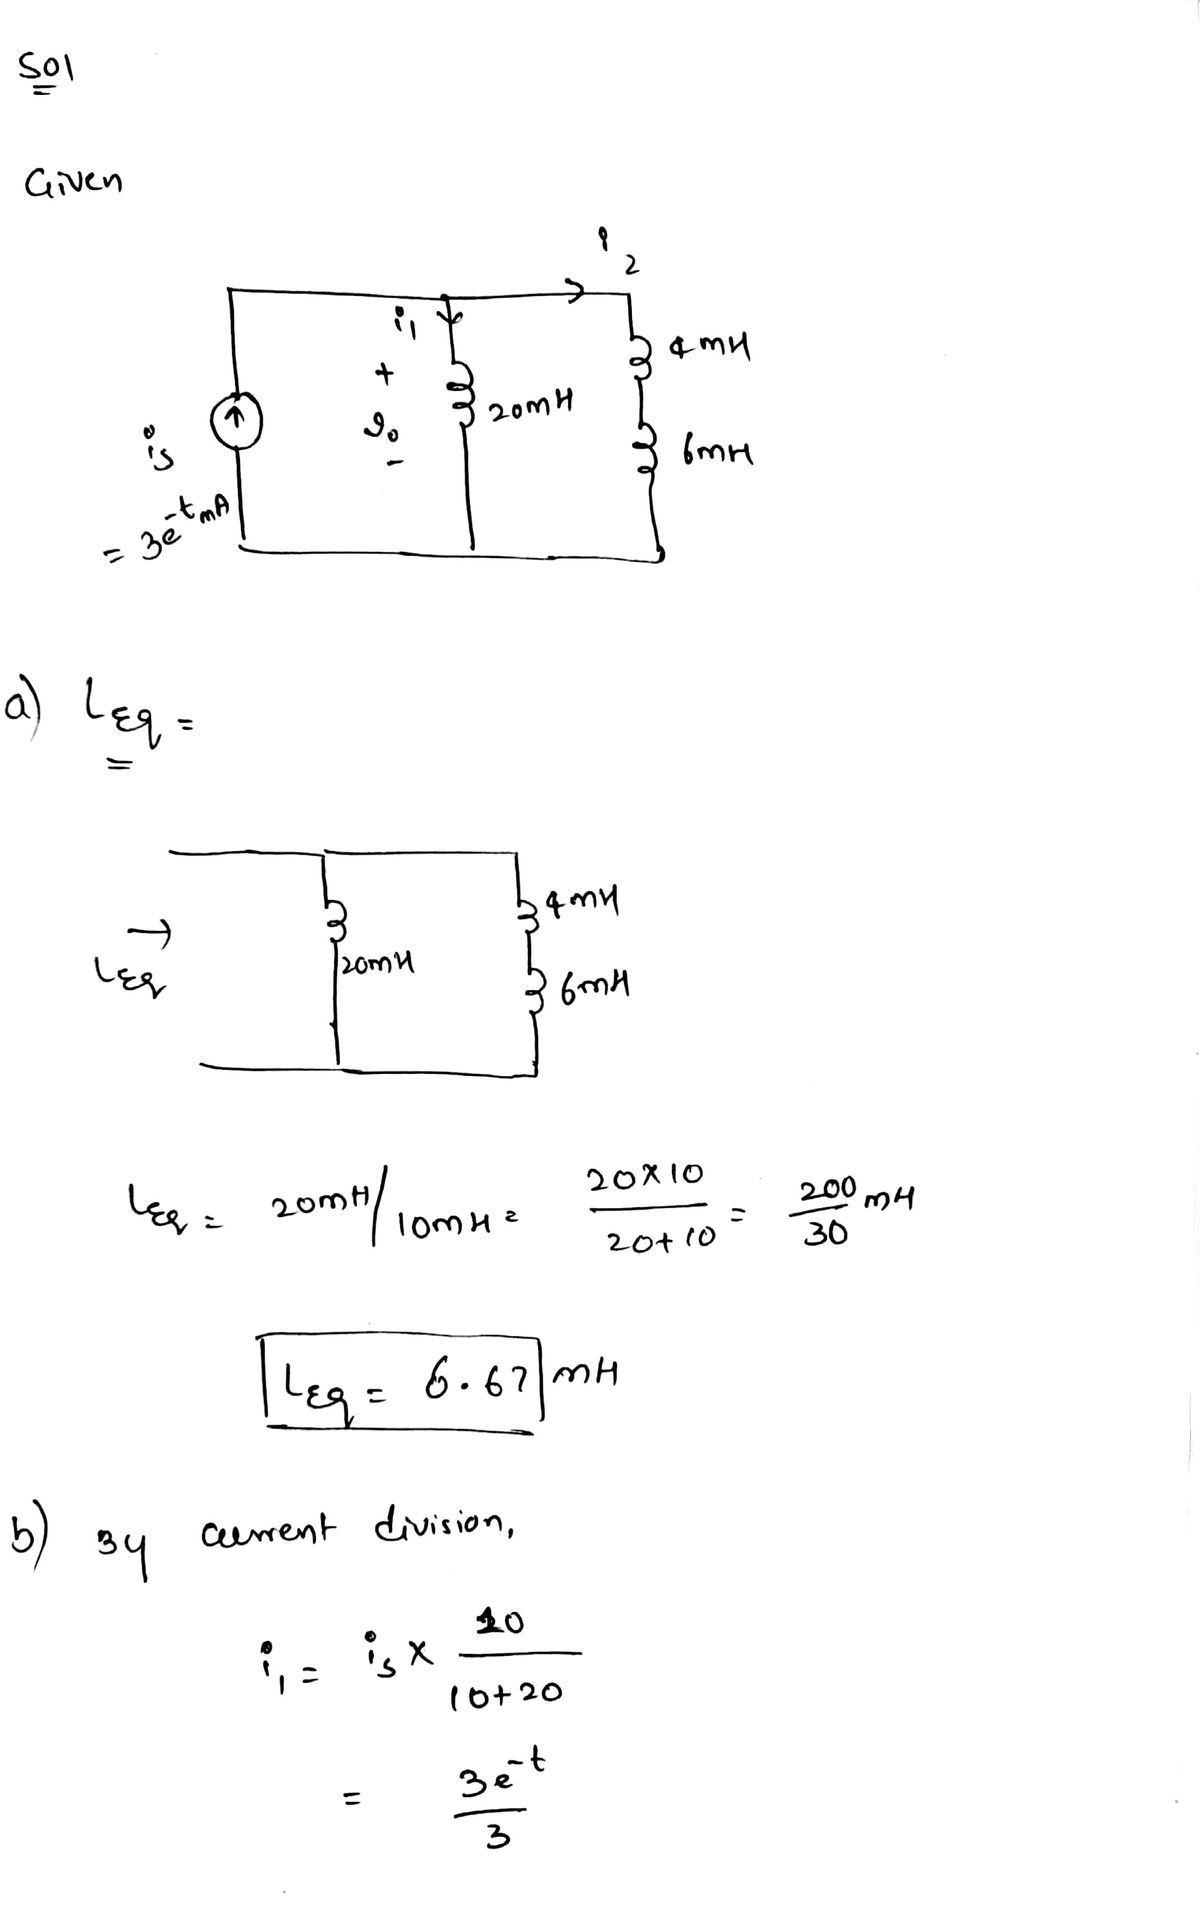 Sol
Given
i2
i1
4mH
+
20mH
is
vo
6mH
-
= 3e^-t mA
a) LEq =
4mH
LEq
20mH
6mH
LEq = 20mH/10mH = 20×10/20+10 = 200/30 mH
LEq = 6.67 mH
b) By current division,
i1 = is × 10/10+20
= 3e^-t/3